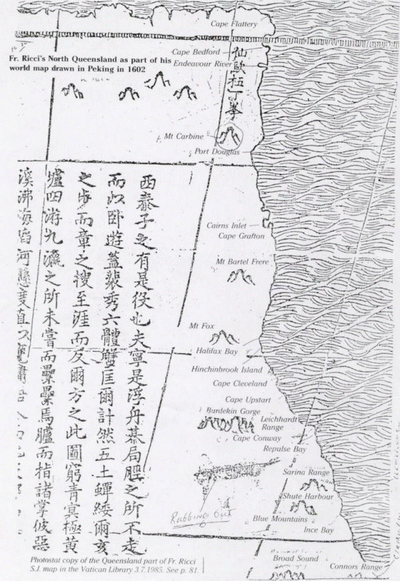 Fr. Ricci's North Queensland as part of his
world map drawn in Peking in 1602
Cape Flattery
Cape Bedford
Endeavour River
Mt Carbine
Port Douglas
Cairns Inlet
Cape Grafton
Mt Bartel Frere
Mt Fox
Halifax Bay
Hinchinbrook Island
Cape Cleveland
Cape Upstart
Burdekin Gorge
Leichhardt
Range
Cape Conway
Repulse Bay
Sarina Range
Shute Harbour
Rubbing out
Blue Mountains
Ince Bay
Broad Sound
Connors Range
西泰子之有是役也夫寧是浮舟棊局脛之所不走
而以卧遊蓋裴秀六體蟹匡爾計然五土蟬緌爾亥
之步而章之搜至涯而反爾方之此圖窮青冥極黄
壚四游九瀛之所未嘗而纍纍馬臚而指諸掌彼惡
溪沸海河懸度直
Photostat copy of the Queensland part of Fr. Ricci
S.J. map in the Vatican Library 3.7.1985. See p. 81.